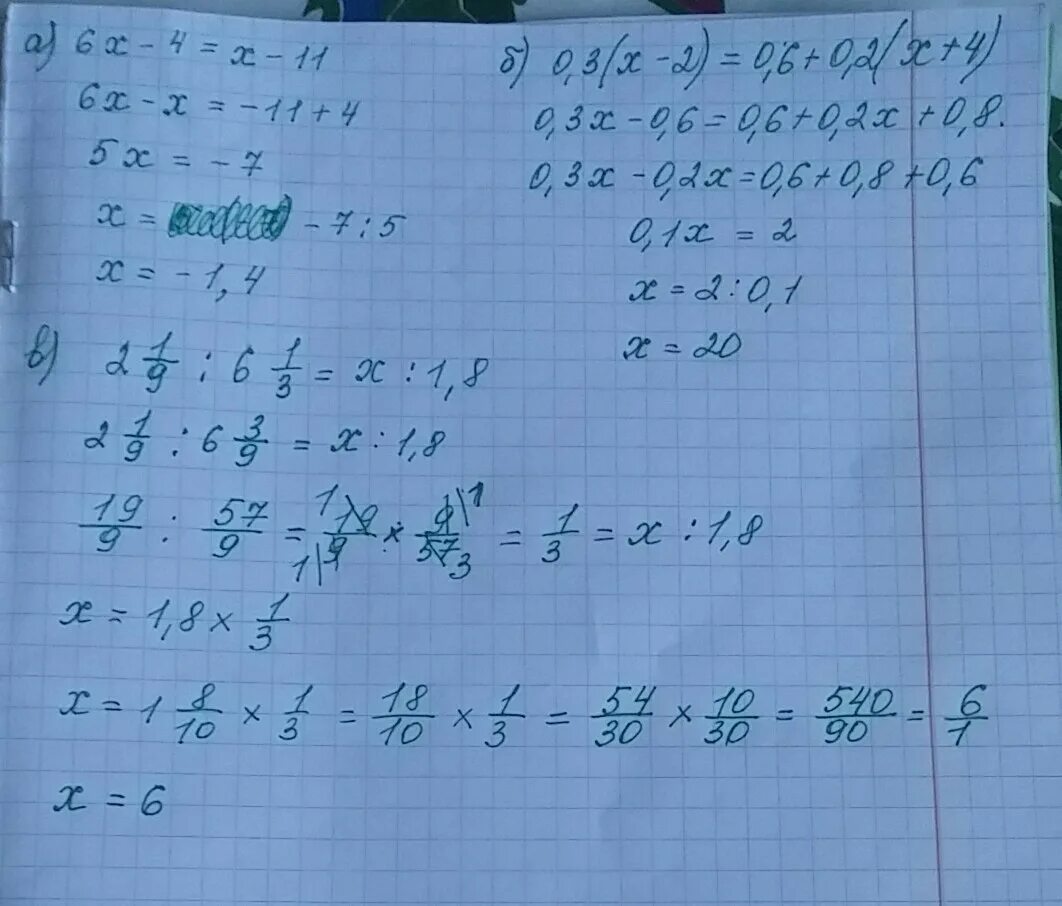 а) 6x - 4 = x - 11
6x - x = -11 + 4
5x = -7
x = -7 : 5
x = -1,4
б) 0,3(x - 2) = 0,6 + 0,2(x + 4)
0,3x - 0,6 = 0,6 + 0,2x + 0,8.
0,3x - 0,2x = 0,6 + 0,8 + 0,6
0,1x = 2
x = 2 : 0,1
x = 20
в) 2 1/9 : 6 1/3 = x : 1,8
2 1/9 : 6 3/9 = x : 1,8
19/9 : 57/9 = 1 19/9 1 × 9 1/57 3 = 1/3 = x : 1,8
x = 1,8 × 1/3
x = 1 8/10 × 1/3 = 18/10 × 1/3 = 54/30 × 10/30 = 540/90 = 6/1
x = 6